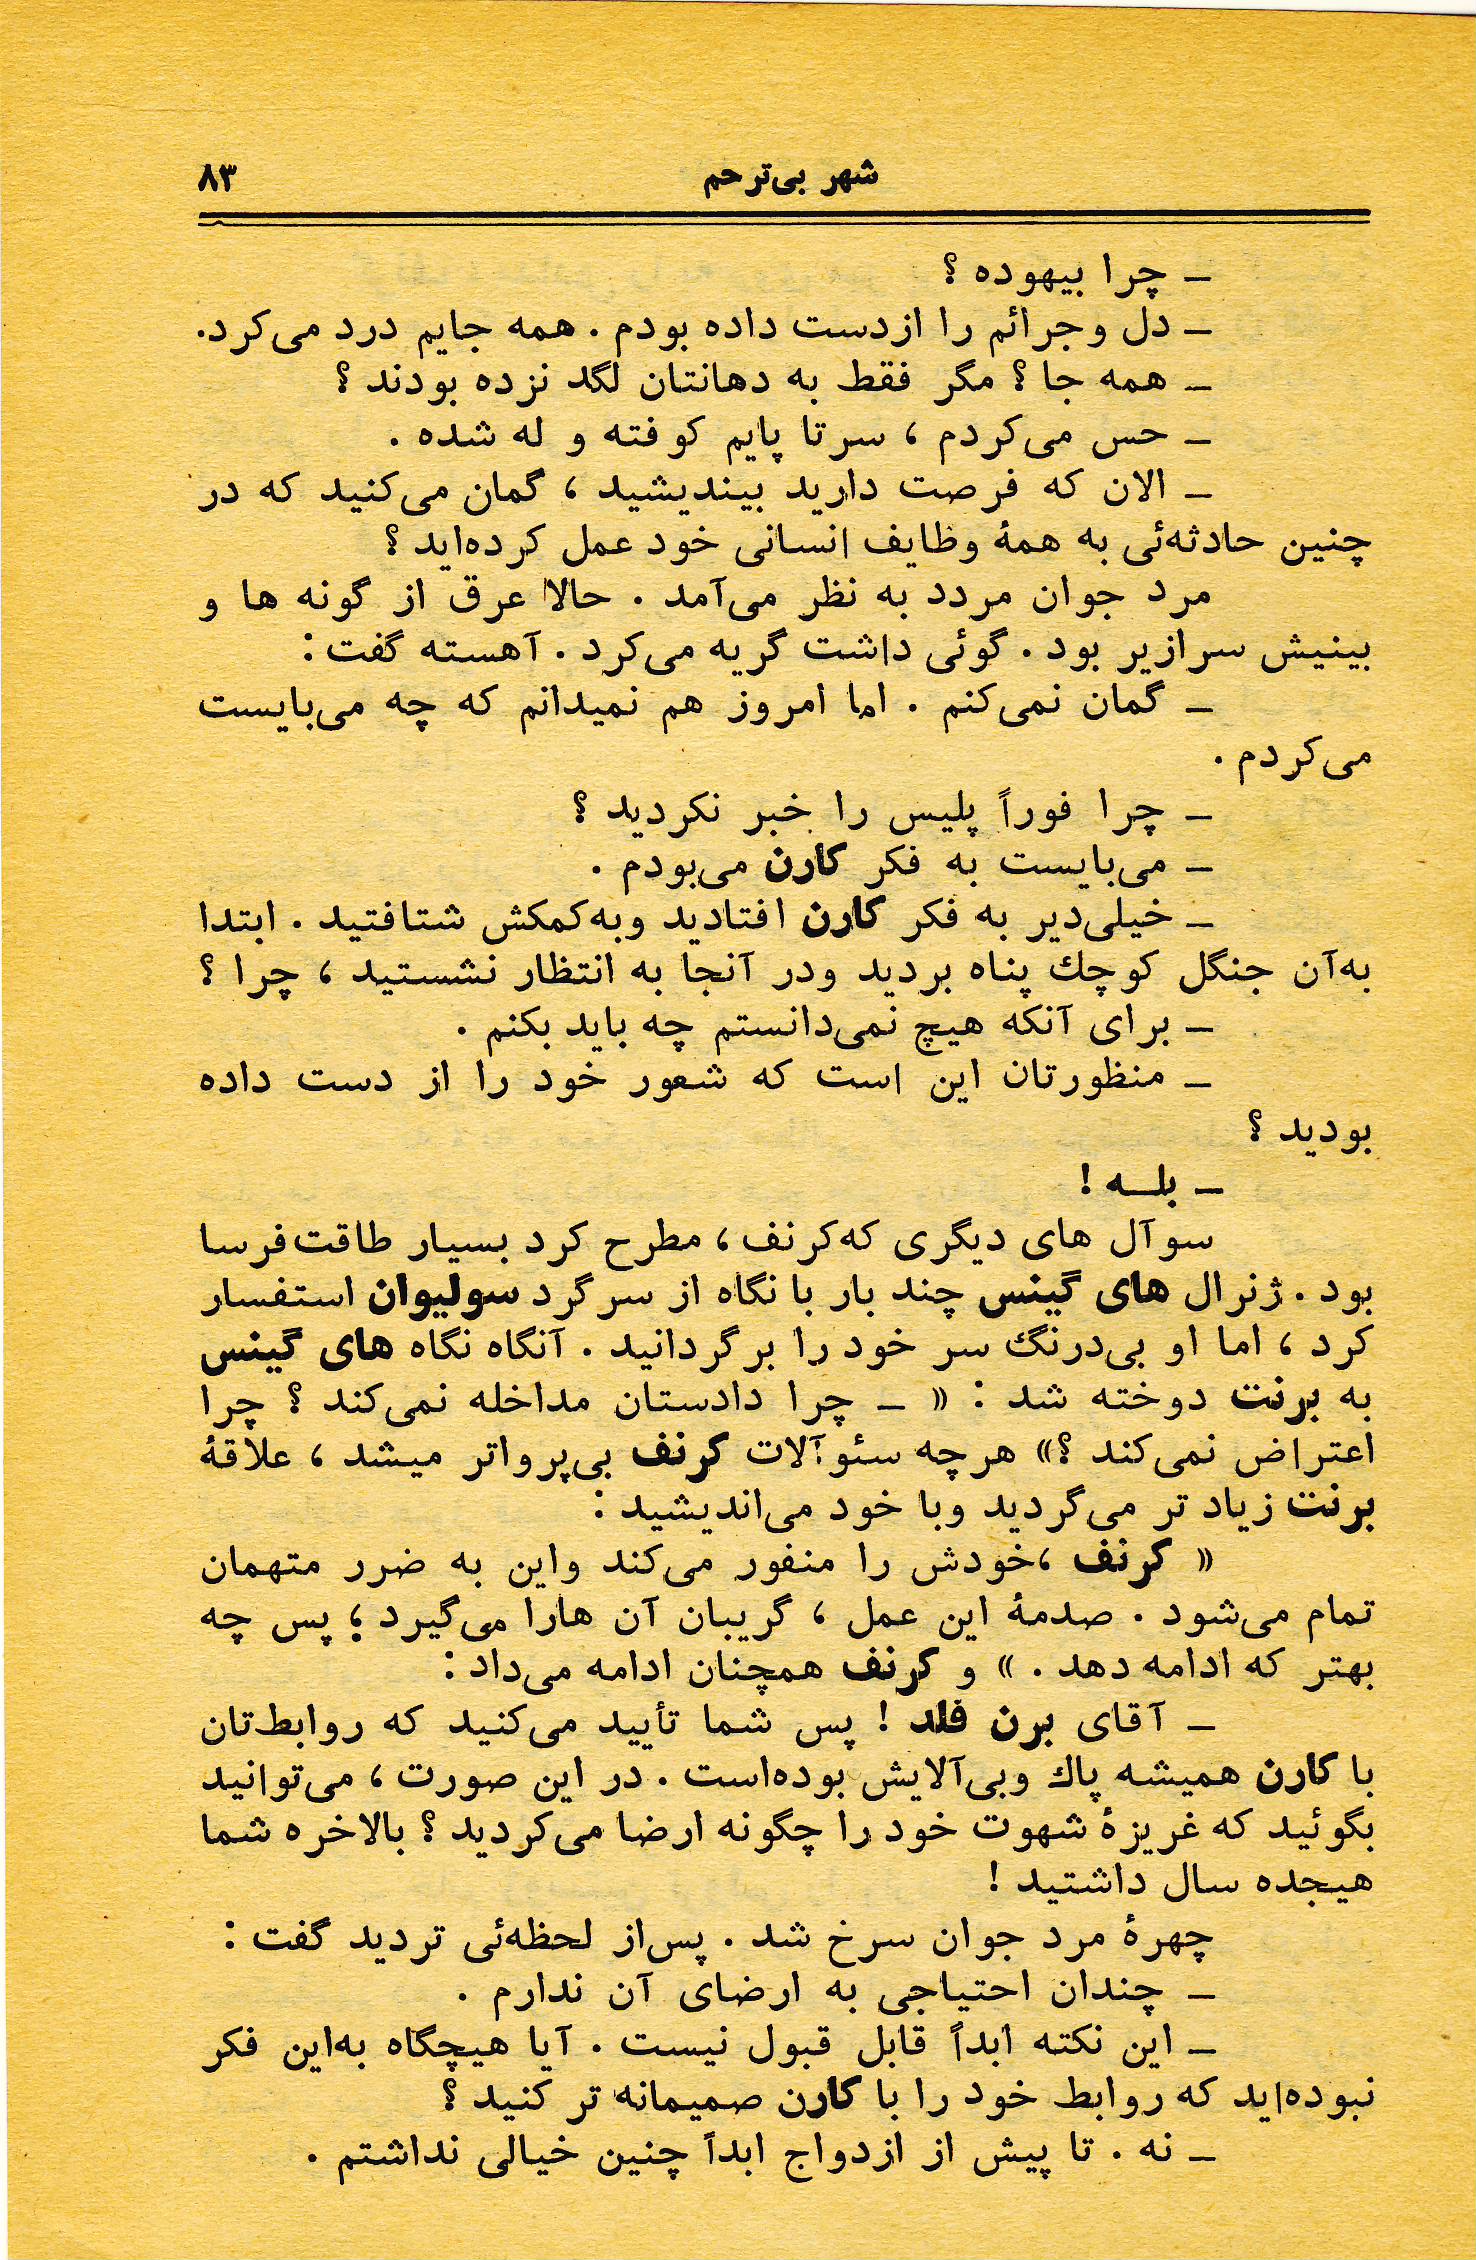 شهر بی‌ترحم ۸۳
ـ چرا بیهوده ؟
ـ دل وجرائم را ازدست داده بودم . همه جایم درد می‌کرد.
ـ همه جا ؟ مگر فقط به دهانتان لگد نزده بودند ؟
ـ حس می‌کردم ، سرتا پایم کوفته و له شده .
ـ الان که فرصت دارید بیندیشید ، گمان می‌کنید که در
چنین حادثه‌ئی به همهٔ وظایف انسانی خود عمل کرده‌اید ؟
مرد جوان مردد به نظر می‌آمد . حالا عرق از گونه ها و
بینیش سرازیر بود . گوئی داشت گریه می‌کرد . آهسته گفت :
ـ گمان نمی‌کنم . اما امروز هم نمیدانم که چه می‌بایست
می‌کردم .
ـ چرا فوراً پلیس را خبر نکردید ؟
ـ می‌بایست به فکر کارن می‌بودم .
ـ خیلی‌دیر به فکر کارن افتادید وبه‌کمکش شتافتید . ابتدا
به‌آن جنگل کوچك پناه بردید ودر آنجا به انتظار نشستید ، چرا ؟
ـ برای آنکه هیچ نمی‌دانستم چه باید بکنم .
ـ منظورتان این است که شعور خود را از دست داده
بودید ؟
ـ بلـه !
سوآل های دیگری که‌کرنف ، مطرح کرد بسیار طاقت‌فرسا
بود . ژنرال های گینس چند بار با نگاه از سرگرد سولیوان استفسار
کرد ، اما او بی‌درنگ سر خود را برگردانید . آنگاه نگاه های گینس
به برنت دوخته شد : « ـ چرا دادستان مداخله نمی‌کند ؟ چرا
اعتراض نمی‌کند ؟» هرچه سئوآلات کرنف بی‌پرواتر میشد ، علاقهٔ
برنت زیاد تر می‌گردید وبا خود می‌اندیشید :
« کرنف ،خودش را منفور می‌کند واین به ضرر متهمان
تمام می‌شود . صدمهٔ این عمل ، گریبان آن هارا می‌گیرد ؛ پس چه
بهتر که ادامه دهد . » و کرنف همچنان ادامه می‌داد :
ـ آقای برن فلد ! پس شما تأیید می‌کنید که روابط‌تان
با کارن همیشه پاك وبی‌آلایش بوده‌است . در این صورت ، می‌توانید
بگوئید که غریزهٔ شهوت خود را چگونه ارضا می‌کردید ؟ بالاخره شما
هیجده سال داشتید !
چهرهٔ مرد جوان سرخ شد . پس‌از لحظه‌ئی تردید گفت :
ـ چندان احتیاجی به ارضای آن ندارم .
ـ این نکته ابداً قابل قبول نیست . آیا هیچگاه به‌این فکر
نبوده‌اید که روابط خود را با کارن صمیمانه تر کنید ؟
ـ نه . تا پیش از ازدواج ابداً چنین خیالی نداشتم .